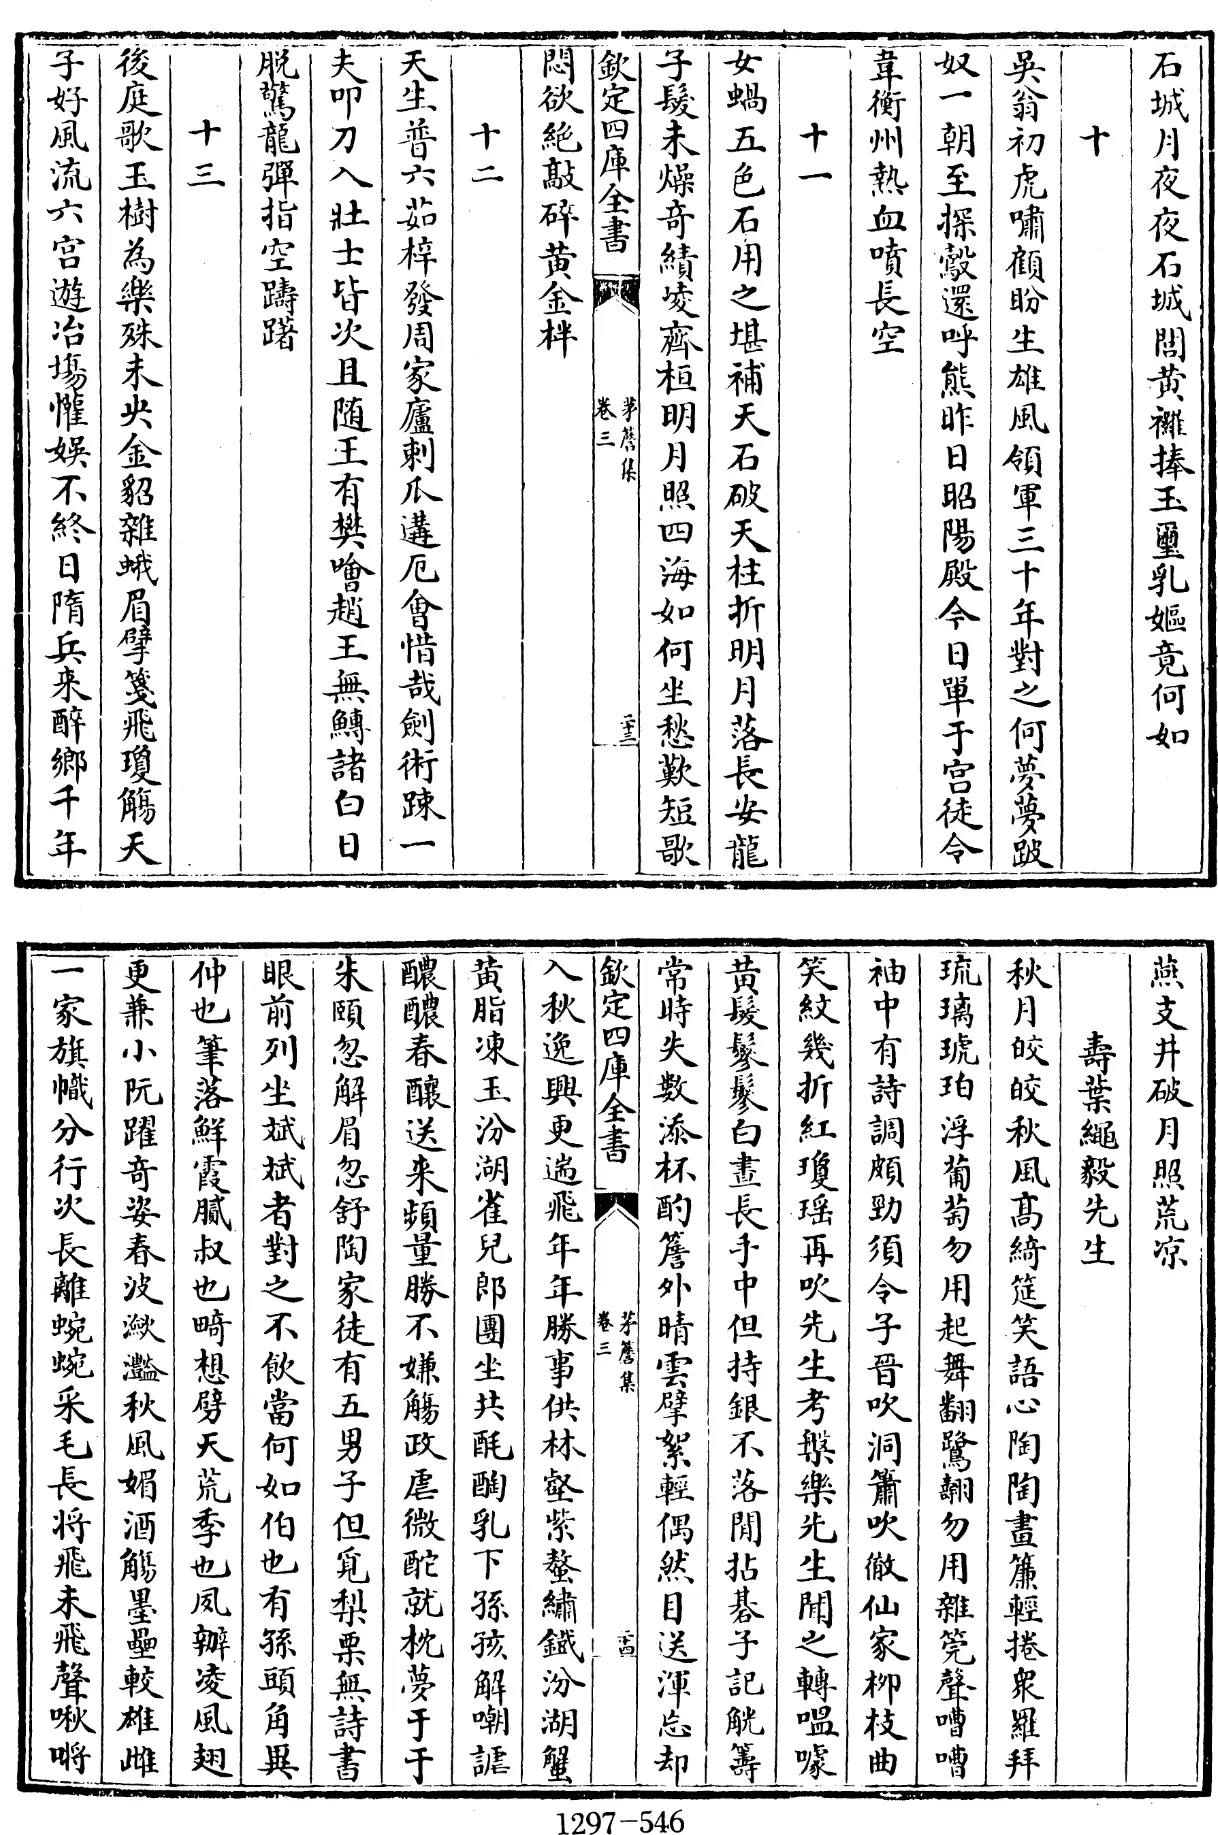 石城月夜夜石城閭黄襬捧玉璽乳嫗竟何如
十
吳翁初虎嘯顧盼生雄風領軍三十年對之何夢夢跛
奴一朝至探鷇還呼熊昨日昭陽殿今日單于宫徒令
韋衡州熱血噴長空
十一
女蝸五色石用之堪補天石破天柱折明月落長安龍
子髮未燥奇績凌齊桓明月照四海如何坐愁歎短歌
欽定四庫全書
茅簷集
卷三
二十三
悶欲絶敲碎黄金柈
十二
天生普六茹梓發周家廬剌瓜遘厄會惜哉劍術踈一
夫叩刀入壯士皆次且随王有樊噲趙王無鱄諸白日
脱驚龍彈指空躊躇
十三
後庭歌玉樹為樂殊未央金貂雜蛾眉擘箋飛瓊觴天
子好風流六宫遊冶塲懽娱不終日隋兵来醉鄉千年
燕支井破月照荒凉
壽葉繩毅先生
秋月皎皎秋風髙綺筵笑語心陶陶畫簾輕捲衆羅拜
琉璃琥珀浮葡萄勿用起舞翻鷺翿勿用雜筦聲嘈嘈
袖中有詩調頗勁須令子晉吹洞簫吹徹仙家柳枝曲
笑紋幾折紅瓊瑶再吹先生考槃樂先生聞之轉嗢噱
黄髮鬖鬖白晝長手中但持銀不落閒拈碁子記觥籌
常時失數添杯酌簷外晴雲擘絮輕偶然目送渾忘却
欽定四庫全書
茅簷集
卷三
二十四
入秋逸興更遄飛年年勝事供林壑紫螯繡鐵汾湖蟹
黄脂凍玉汾湖雀兒郎團坐共酕醄乳下孫孩解嘲謔
醲醲春釀送来頻量勝不嫌觴政虐微酡就枕夢于于
朱頤忽解眉忽舒陶家徒有五男子但覓梨栗無詩書
眼前列坐斌斌者對之不飲當何如伯也有孫頭角異
仲也筆落鮮霞膩叔也畸想劈天荒季也夙辦凌風翅
更兼小阮躍奇姿春波瀲灎秋風媚酒觴墨壘較雄雌
一家旗幟分行次長離蜿蜿采毛長将飛未飛聲啾嘒
1297-546